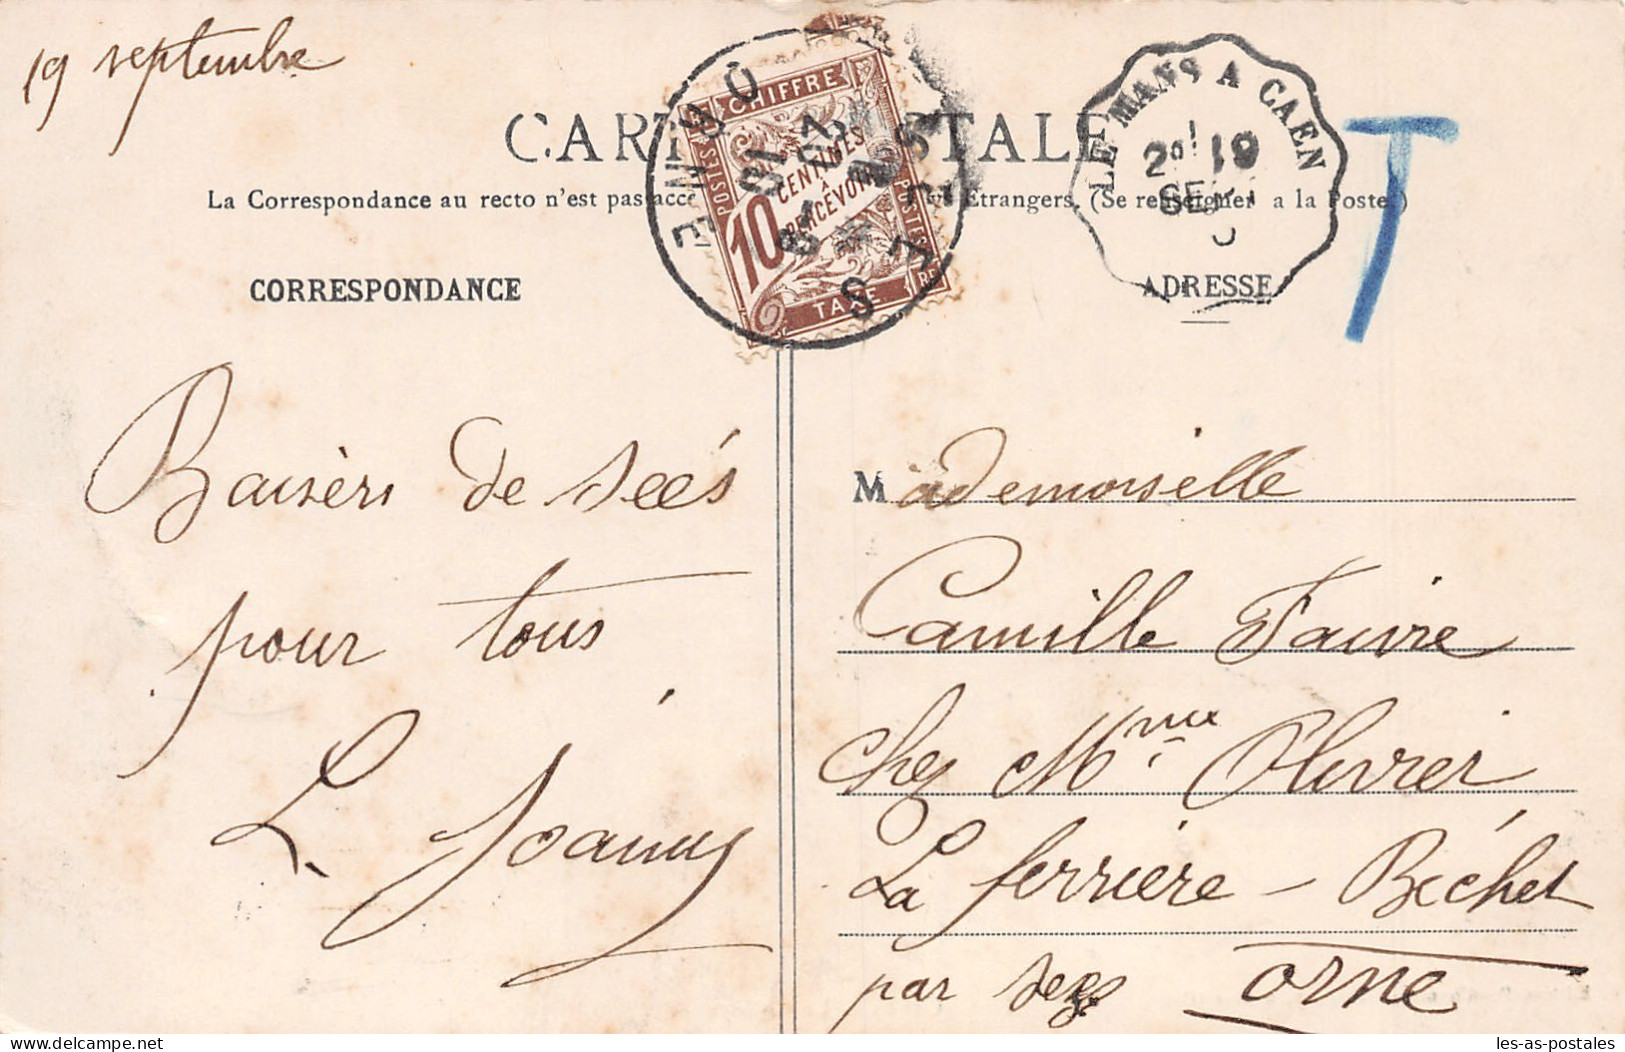 19 septembre
CARTE POSTALE
La Correspondance au recto n'est pas acc Etrangers. (Se renseigner a la Poste.)
CORRESPONDANCE
ADRESSE
CHIFFRE
POSTES
10
CENTIMES
A
PERCEVOIR
POSTES
TAXE
RF
SEES
ORNE
LE MANS A CAEN
2° 19
SEPT
T
Baisers de Seés
pour tous
L Joanny
Mademoiselle
Camille Faivre
chez Mme Olivier
La ferrière - Béchet
par Sees Orne
les-as-postales.com